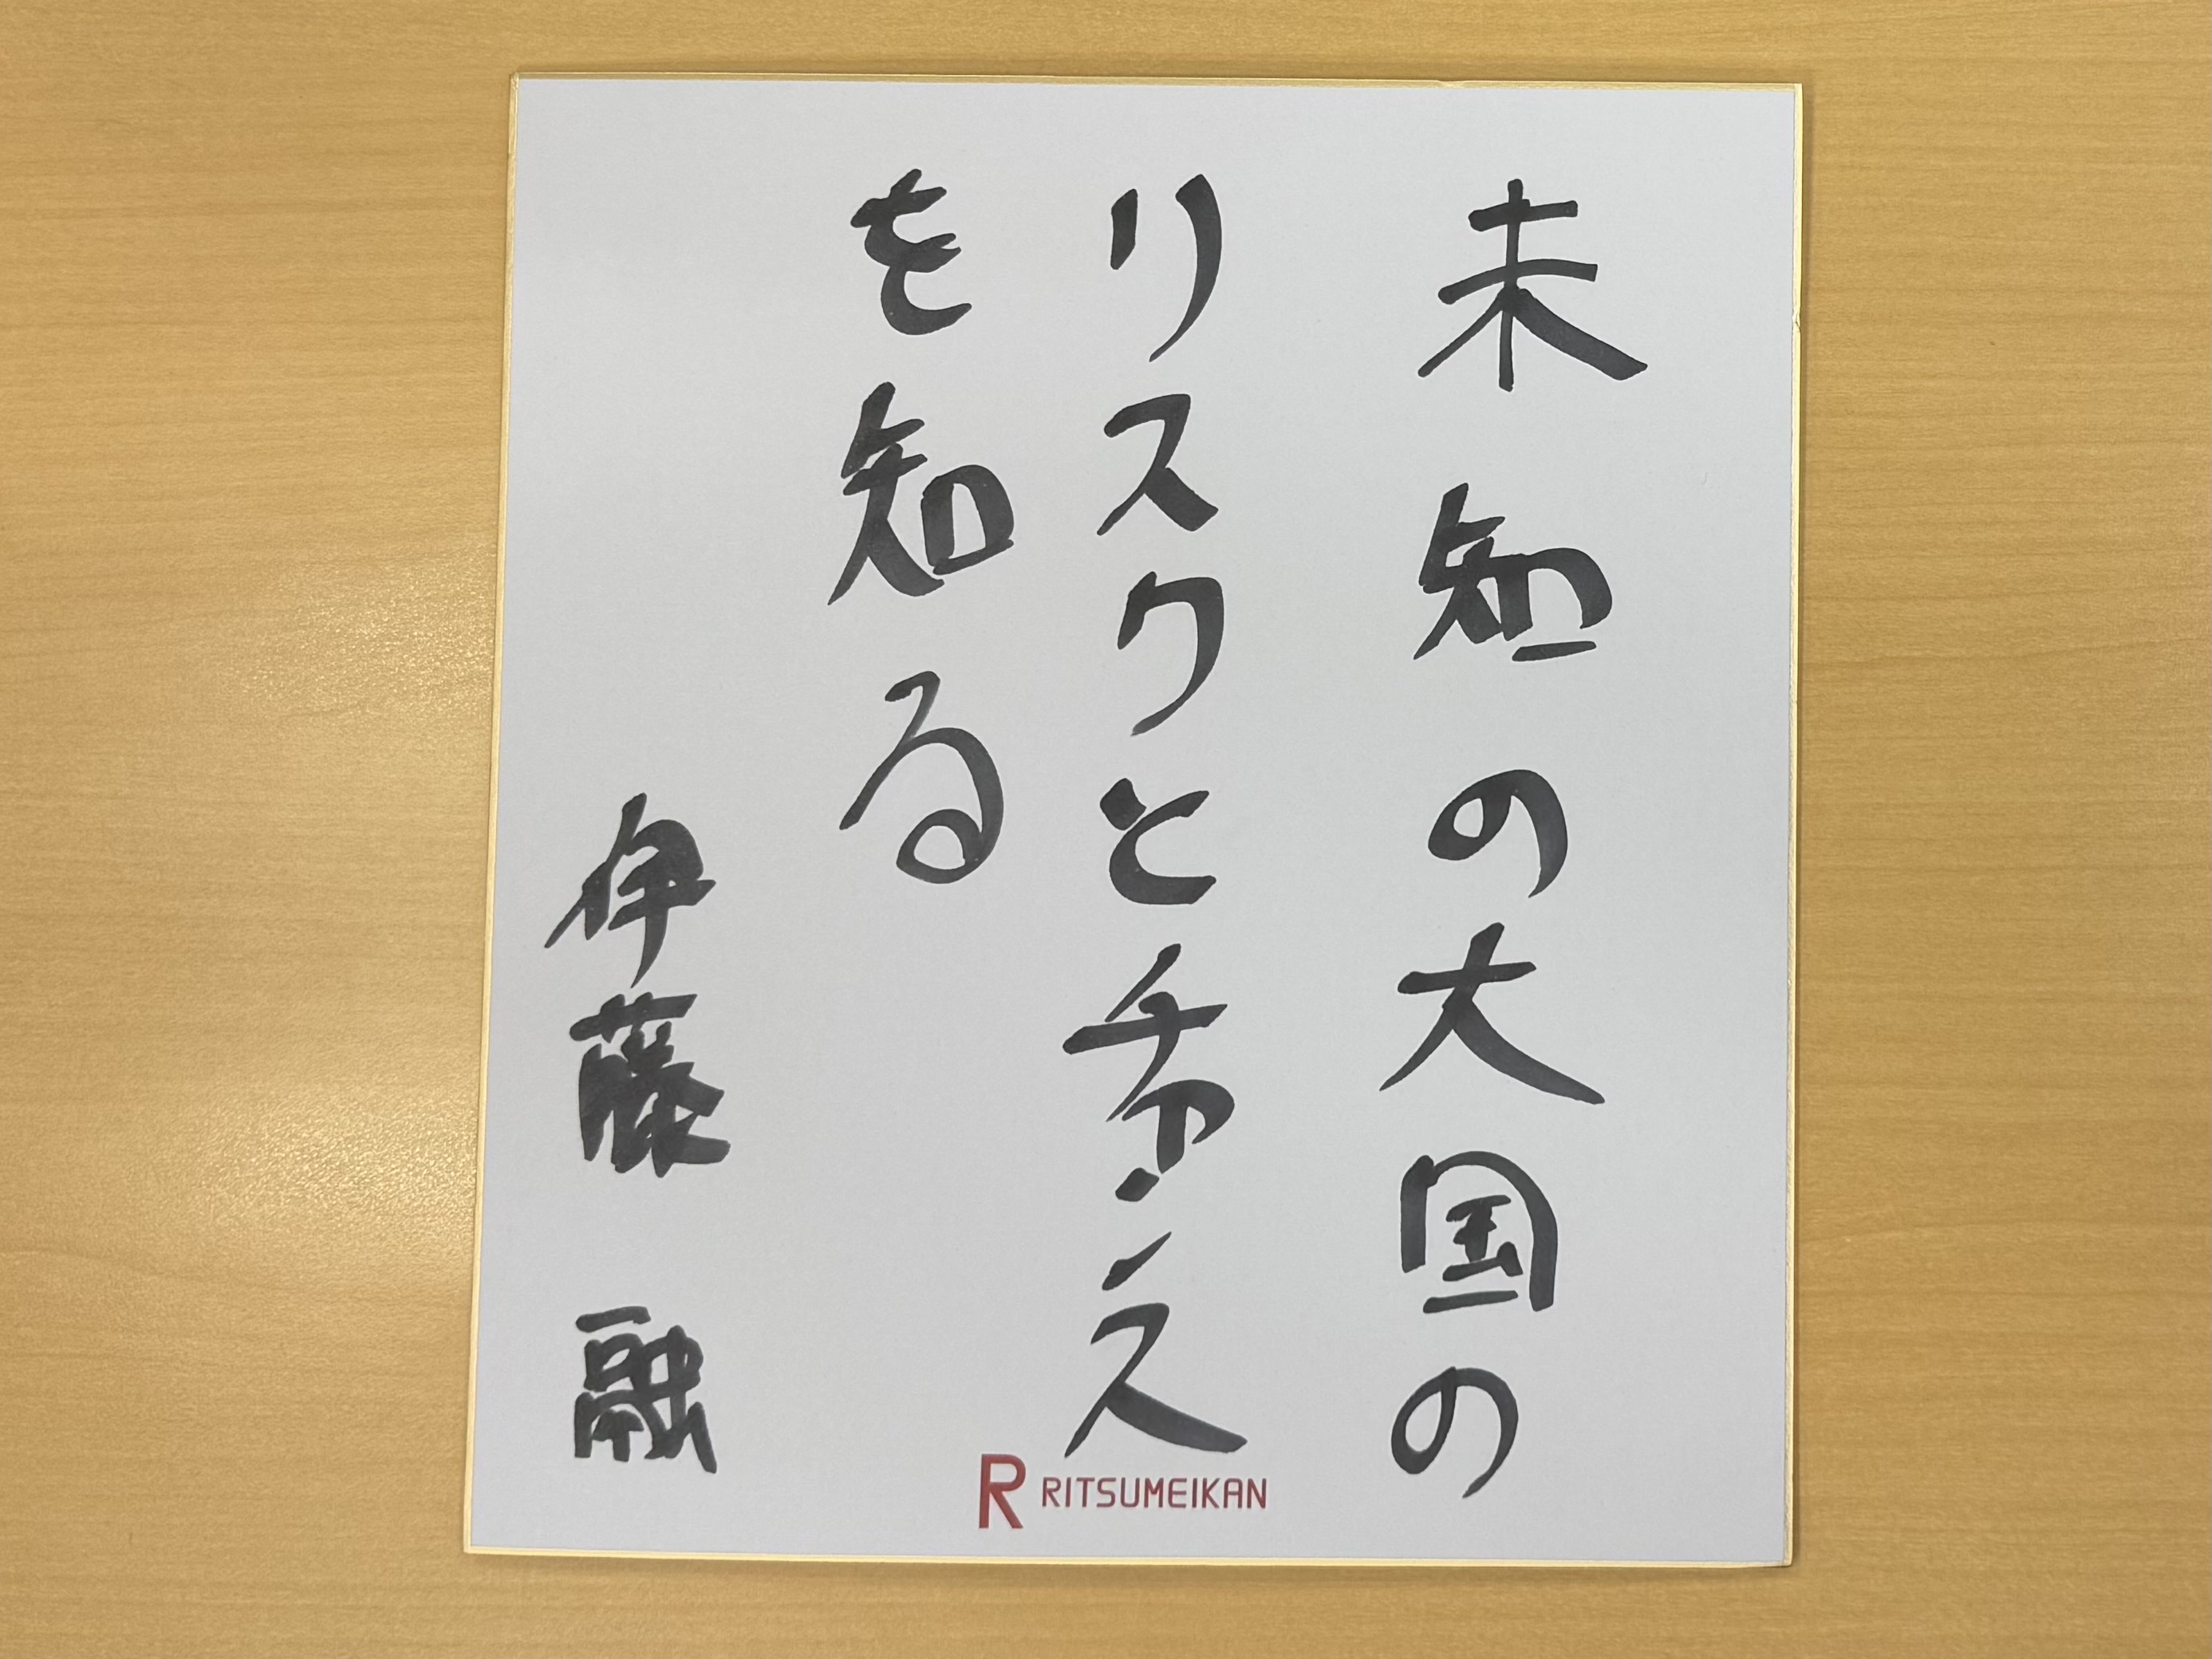 未知の大国の
リスクとチャンス
を知る
伊藤 融
R RITSUMEIKAN